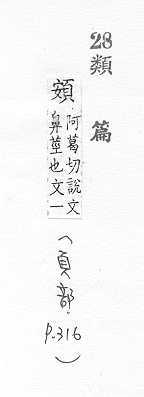 28類篇
頞阿葛切說文
鼻莖也文一
（頁部 p.316）